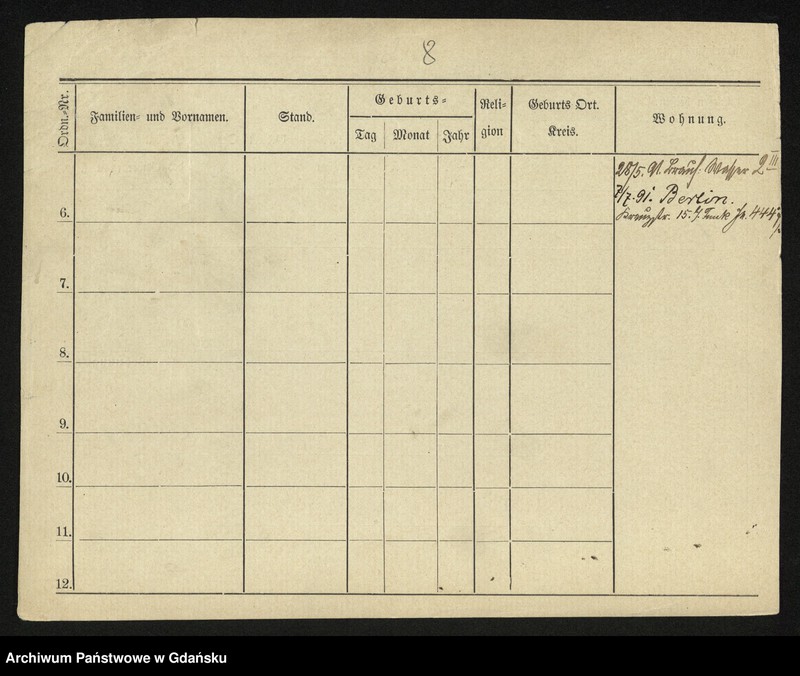 8
Ordn.-Nr.
Familien- und Vornamen.
Stand.
Geburts-
Tag
Monat
Jahr
Reli-
gion
Geburts Ort.
Kreis.
Wohnung.
28/5. Wasser 2 III
7/7. 91. Berlin.
15. 444
6.
7.
8.
9.
10.
11.
12.
Archiwum Państwowe w Gdańsku